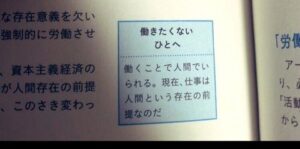 な存在意義を欠い
強制的に労働させ
、資本主義経済の
が人間存在の前提
、このさき変わっ
働きたくない
ひとへ
働くことで人間でい
られる。現在、仕事は
人間という存在の前
提なのだ
「労働
アー
り、必
「活動
から